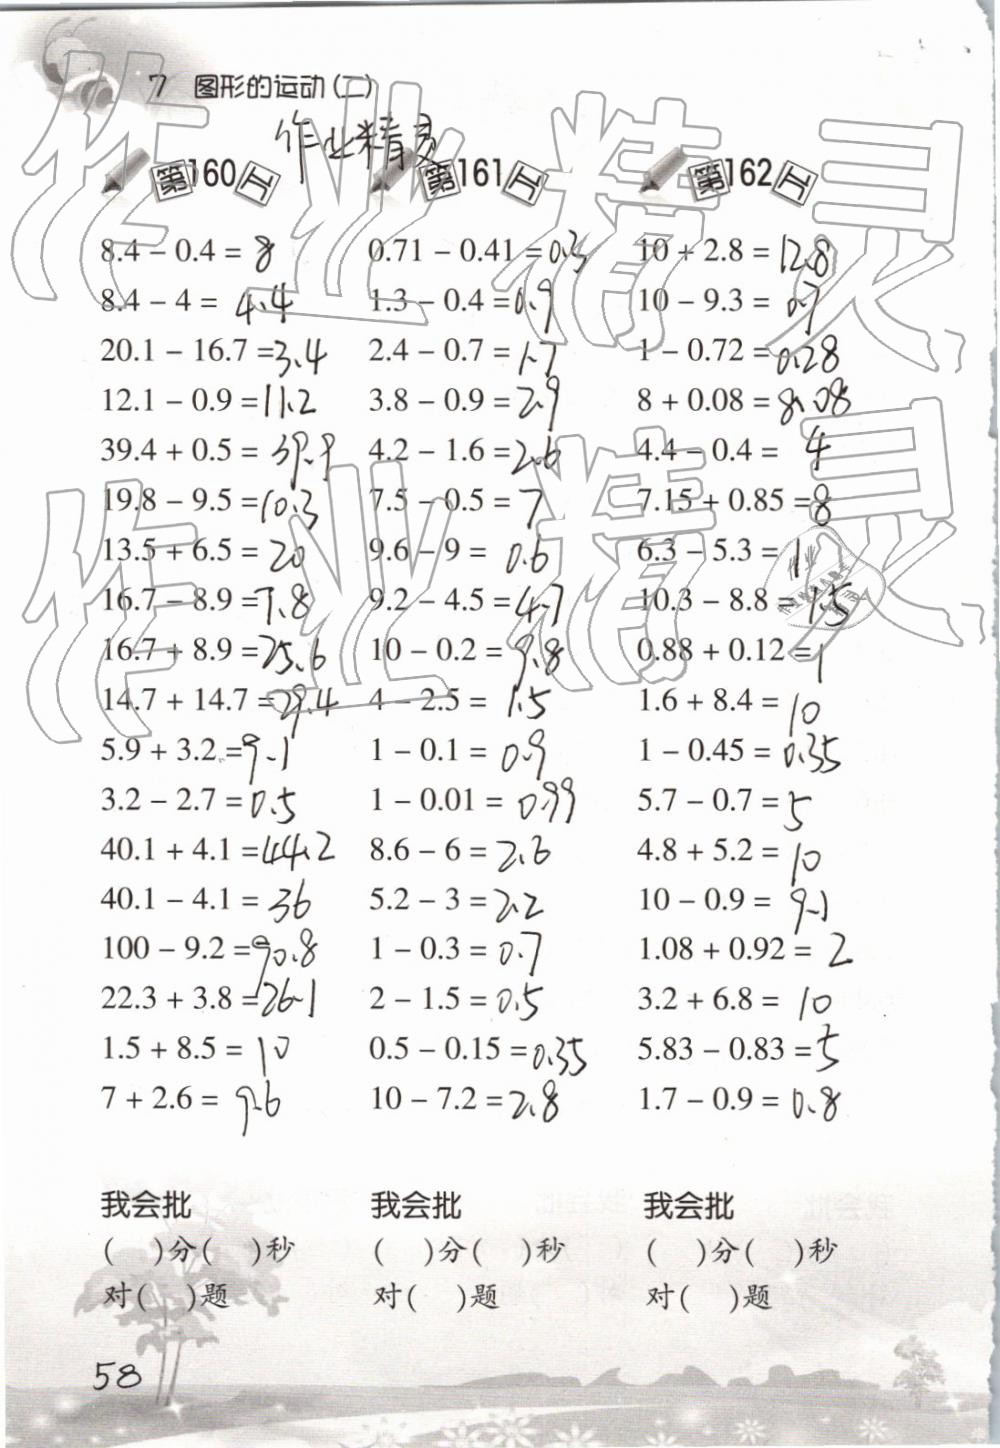 7 图形的运动(二)
作业精灵
第160天 第161天 第162天
8.4 − 0.4 = 8 0.71 − 0.41 = 0.3 10 + 2.8 = 12.8
8.4 − 4 = 4.4 1.3 − 0.4 = 0.9 10 − 9.3 = 0.7
20.1 − 16.7 = 3.4 2.4 − 0.7 = 1.7 1 − 0.72 = 0.28
12.1 − 0.9 = 11.2 3.8 − 0.9 = 2.9 8 + 0.08 = 8.08
39.4 + 0.5 = 39.9 4.2 − 1.6 = 2.6 4.4 − 0.4 = 4
19.8 − 9.5 = 10.3 7.5 − 0.5 = 7 7.15 + 0.85 = 8
13.5 + 6.5 = 20 9.6 − 9 = 0.6 6.3 − 5.3 = 1
16.7 − 8.9 = 7.8 9.2 − 4.5 = 4.7 10.3 − 8.8 = 1.5
16.7 + 8.9 = 25.6 10 − 0.2 = 9.8 0.88 + 0.12 = 1
14.7 + 14.7 = 29.4 4 − 2.5 = 1.5 1.6 + 8.4 = 10
5.9 + 3.2 = 9.1 1 − 0.1 = 0.9 1 − 0.45 = 0.35
3.2 − 2.7 = 0.5 1 − 0.01 = 0.99 5.7 − 0.7 = 5
40.1 + 4.1 = 44.2 8.6 − 6 = 2.6 4.8 + 5.2 = 10
40.1 − 4.1 = 36 5.2 − 3 = 2.2 10 − 0.9 = 9.1
100 − 9.2 = 90.8 1 − 0.3 = 0.7 1.08 + 0.92 = 2
22.3 + 3.8 = 26.1 2 − 1.5 = 0.5 3.2 + 6.8 = 10
1.5 + 8.5 = 10 0.5 − 0.15 = 0.35 5.83 − 0.83 = 5
7 + 2.6 = 9.6 10 − 7.2 = 2.8 1.7 − 0.9 = 0.8
我会批 我会批 我会批
( )分( )秒 ( )分( )秒 ( )分( )秒
对( )题 对( )题 对( )题
58
作业精灵
作业精灵